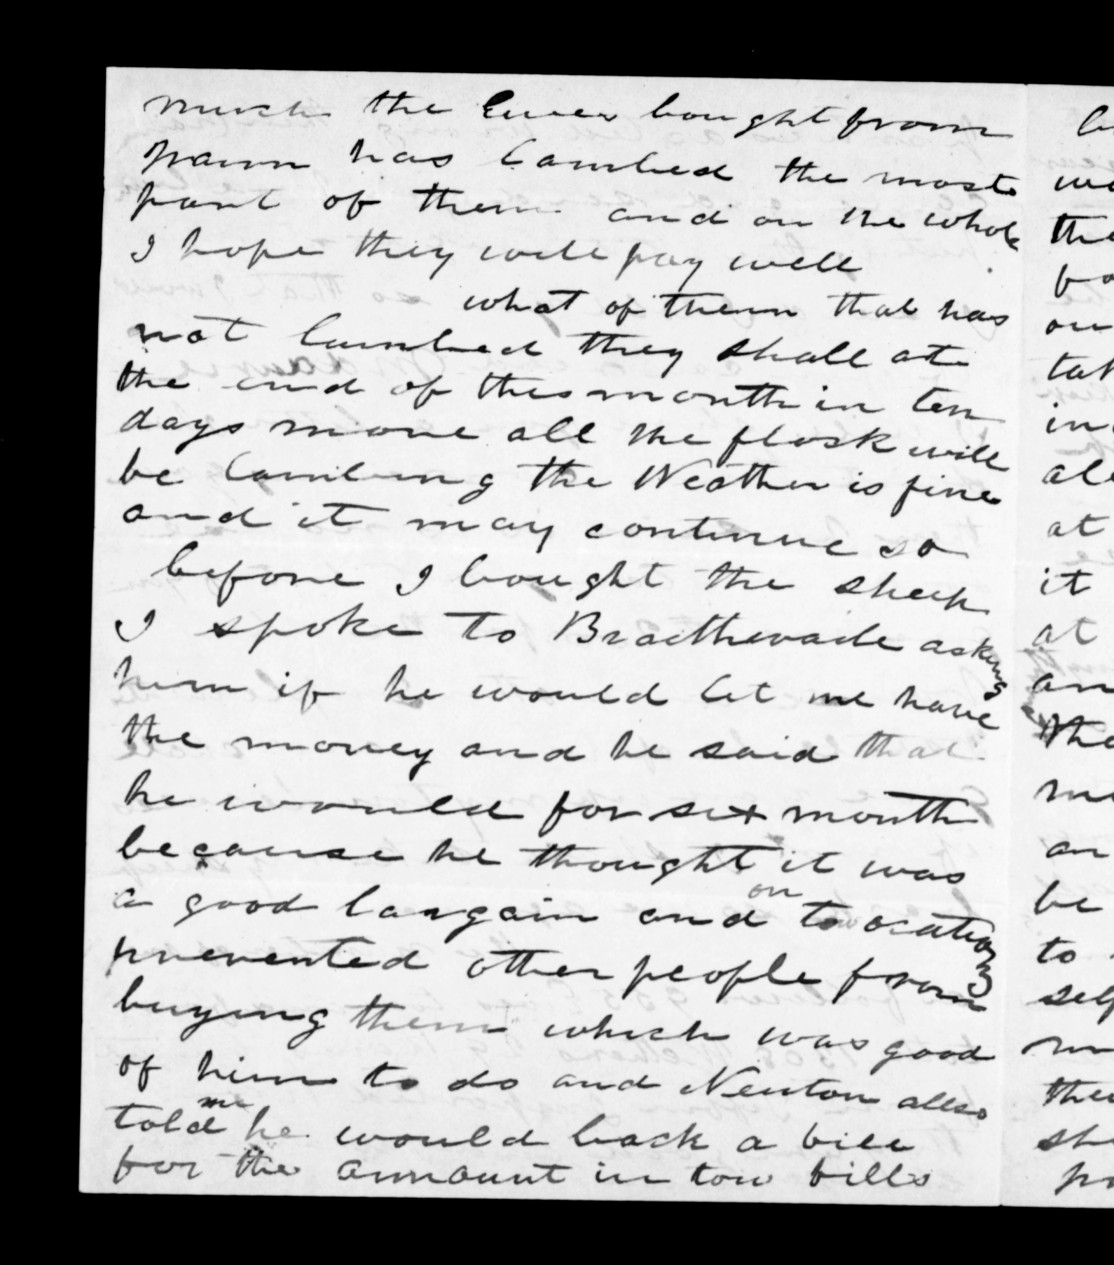 much the Ewes bought from
pawn has lambed the most
part of them and on the whole
I hope they will pay well
what of them that has
not lambed they shall at
the end of this month in ten
days more all the flosk will
be lambing the Weather is fine
and it may continue so
before I bought the sheep
I spoke to asking
him if he would let me have
the money and he said that
he would for six month
because he thought it was
a good bargain and on tow ocations
prevented other people from
buying them which was good
of him to do and Newton allso
told me he would back a bill
for the ammount in tow bills